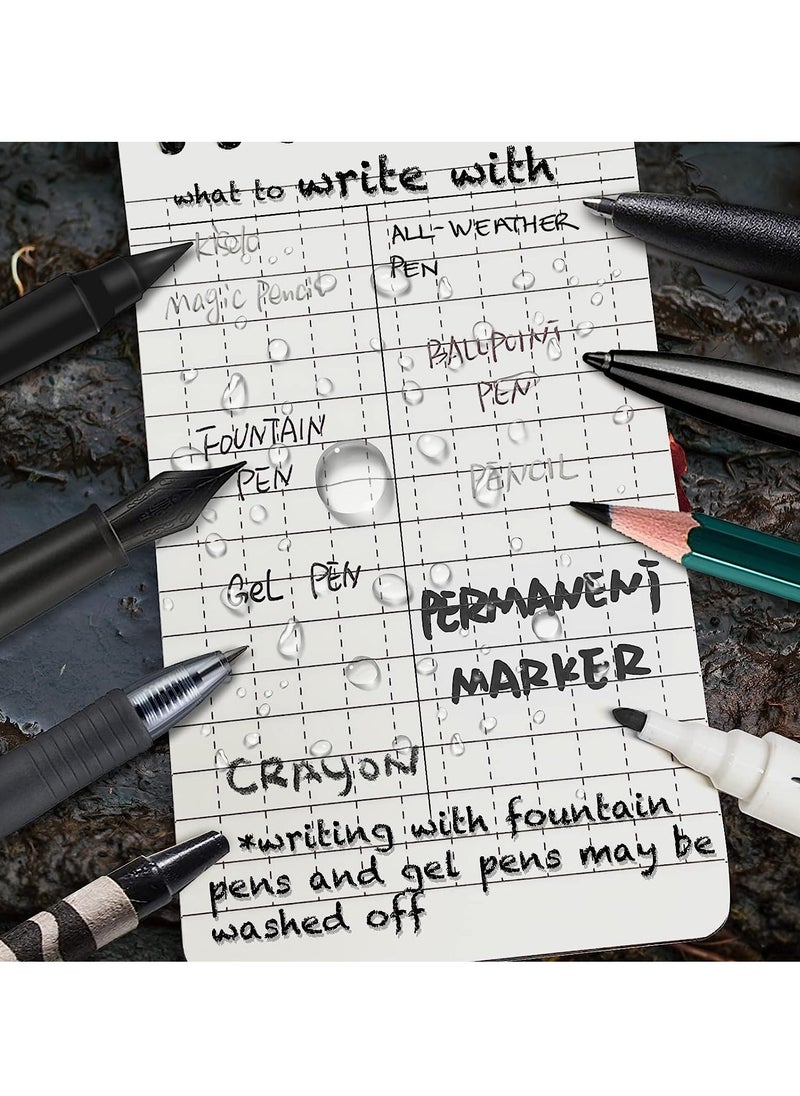 what to write with
Kisela
Magic Pencil
FOUNTAIN
PEN
GeL PEN
CRAYON
ALL-WEATHER
PEN
BALLPOINT
PEN
PENCIL
PERMANENT
MARKER
*writing with fountain
pens and gel pens may be
washed off